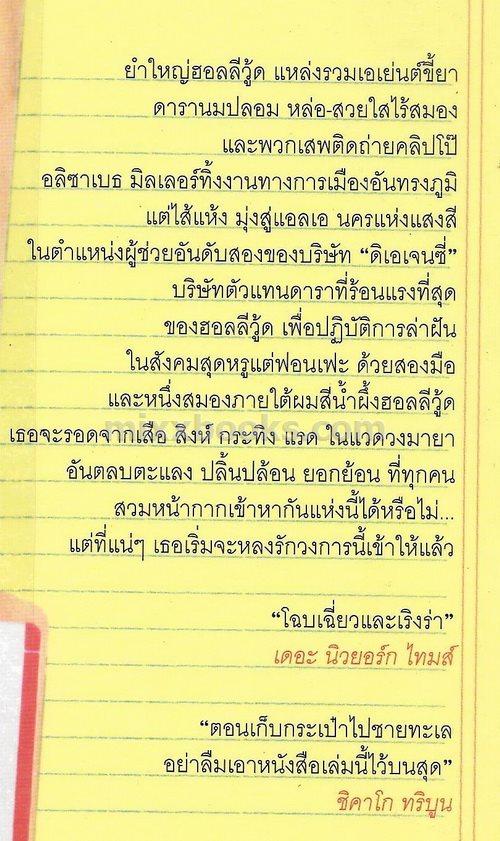 ยำใหญ่ฮอลลีวู้ด แหล่งรวมเอเย่นต์ขี้ยา
ดารานมปลอม หล่อ-สวยใสไร้สมอง
และพวกเสพติดถ่ายคลิปโป๊
อลิซาเบธ มิลเลอร์ทิ้งงานทางการเมืองอันทรงภูมิ
แต่ไส้แห้ง มุ่งสู่แอลเอ นครแห่งแสงสี
ในตำแหน่งผู้ช่วยอันดับสองของบริษัท “ดิเอเจนซี่”
บริษัทตัวแทนดาราที่ร้อนแรงที่สุด
ของฮอลลีวู้ด เพื่อปฏิบัติการล่าฝัน
ในสังคมสุดหรูแต่ฟอนเฟะ ด้วยสองมือ
และหนึ่งสมองภายใต้ผมสีน้ำผึ้งฮอลลีวู้ด
mixzbooks.com
เธอจะรอดจากเสือ สิงห์ กระทิง แรด ในแวดวงมายา
อันตลบตะแลง ปลิ้นปล้อน ยอกย้อน ที่ทุกคน
สวมหน้ากากเข้าหากันแห่งนี้ได้หรือไม่...
แต่ที่แน่ๆ เธอเริ่มจะหลงรักวงการนี้เข้าให้แล้ว
“โฉบเฉี่ยวและเริงร่า”
เดอะ นิวยอร์ก ไทมส์
“ตอนเก็บกระเป๋าไปชายทะเล
อย่าลืมเอาหนังสือเล่มนี้ไว้บนสุด”
ชิคาโก ทริบูน